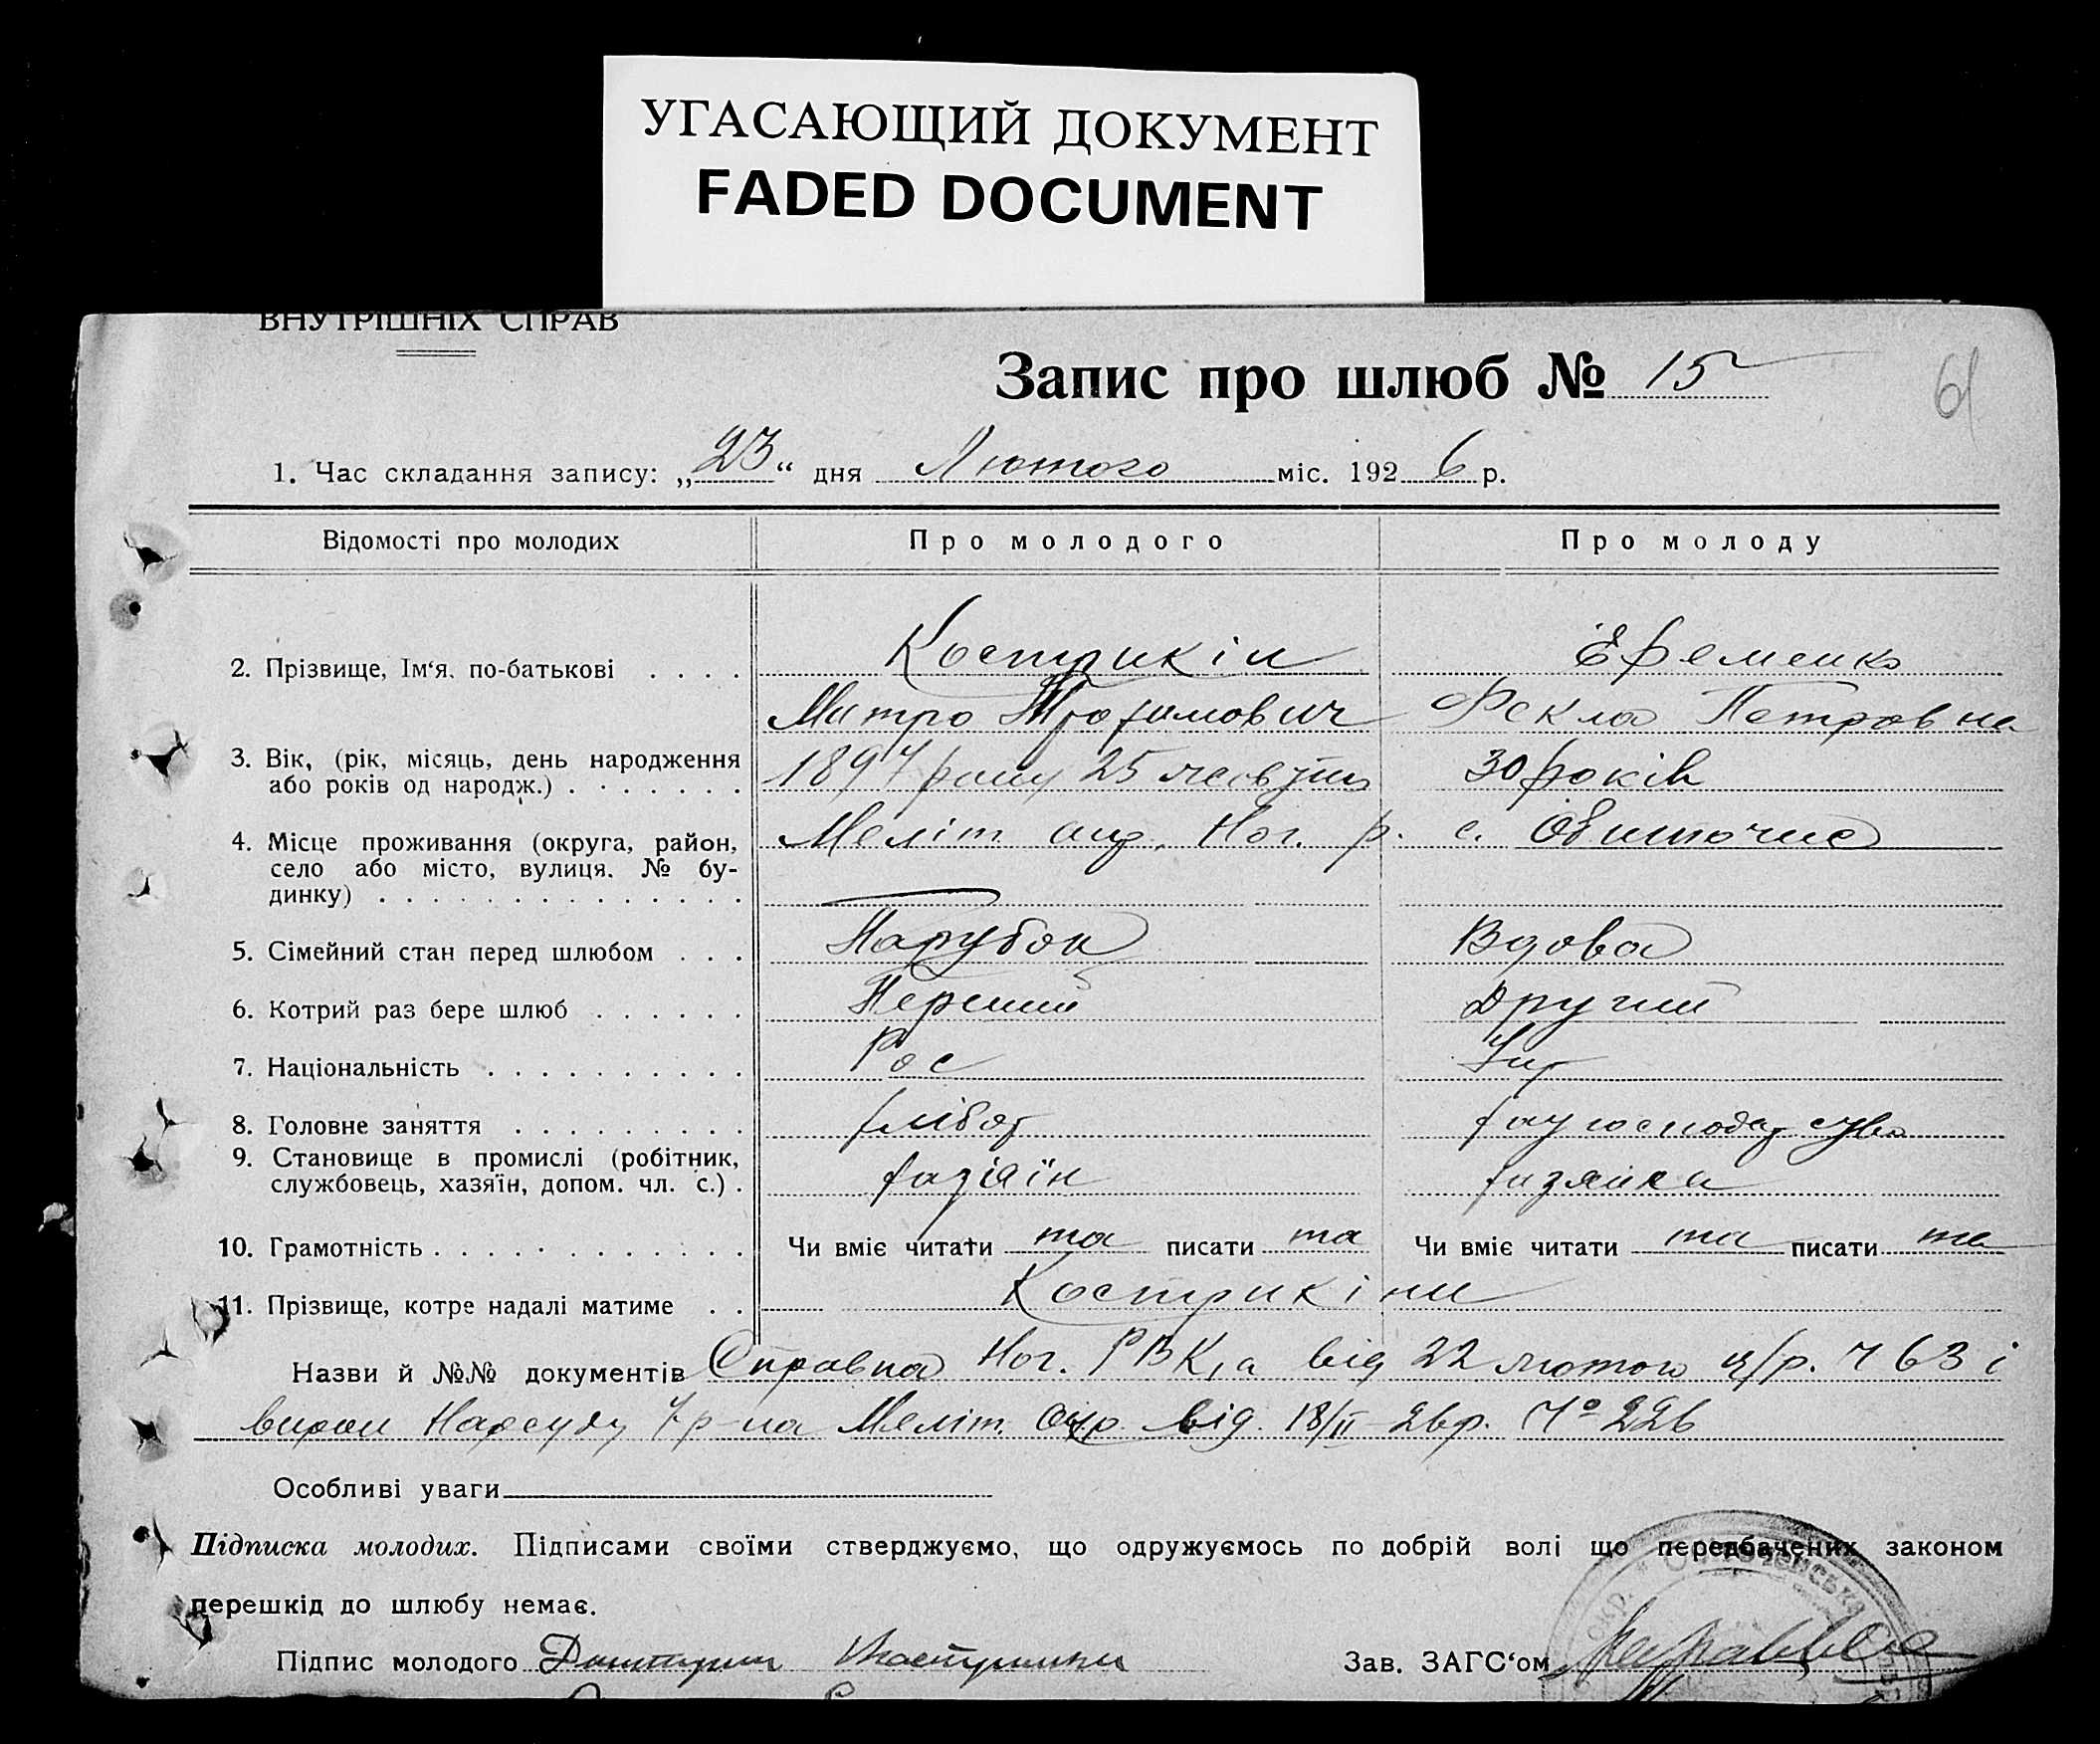 УГАСАЮЩИЙ ДОКУМЕНТ
FADED DOCUMENT
ВНУТРІШНІХ СПРАВ
Запис про шлюб № 15
61
1. Час складання запису: „23“ дня Лютого міс. 1926 р.
Відомості про молодих Про молодого Про молоду
2. Прізвище, Ім‘я, по-батькові Кострикін Ефременко
Митро Трофимович Фекла Петровна
3. Вік, (рік, місяць, день народження
або років од народж.) 1897 року 25 30 років
4. Місце проживання (округа, район, Меліт. окр. Ног. р. с. Обиточне
село або місто, вулиця. № бу-
динку)
5. Сімейний стан перед шлюбом Парубок Вдова
6. Котрий раз бере шлюб Перший Другий
7. Національність Рос Укр
8. Головне заняття хлібор
9. Становище в промислі (робітник,
службовець, хазяїн, допом. чл. с.) хазяін хазяйка
10. Грамотність Чи вміє читати та писати та Чи вміє читати та писати та
11. Прізвище, котре надалі матиме Кострикіни
Назви й №№ документів Справка Ног. РВК,а від 22 лютого ц/р. Ч 63 і
Нарсуду 7 р-на Меліт. Окр. від. 18/II-26р. Ч° 226
Особливі уваги
Підписка молодих. Підписами своїми стверджуємо, що одружуємось по добрій волі що передбачених законом
перешкід до шлюбу немає.
Підпис молодого Зав. ЗАГС‘ом